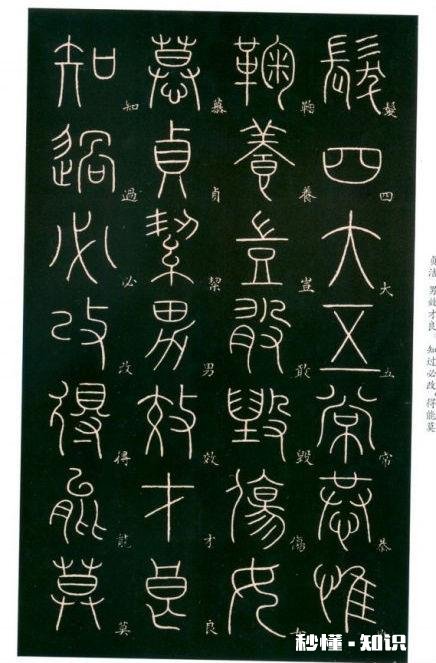 髮四大五常恭惟
髮四大五常恭
鞠養豈敢毀傷女
鞠養豈敢毀傷女
慕貞絜男效才良
慕貞絜男效才良
知過必改得能莫
知過必改得能莫
贞洁 男效才良。 知过必改,得能莫
秒懂·知识